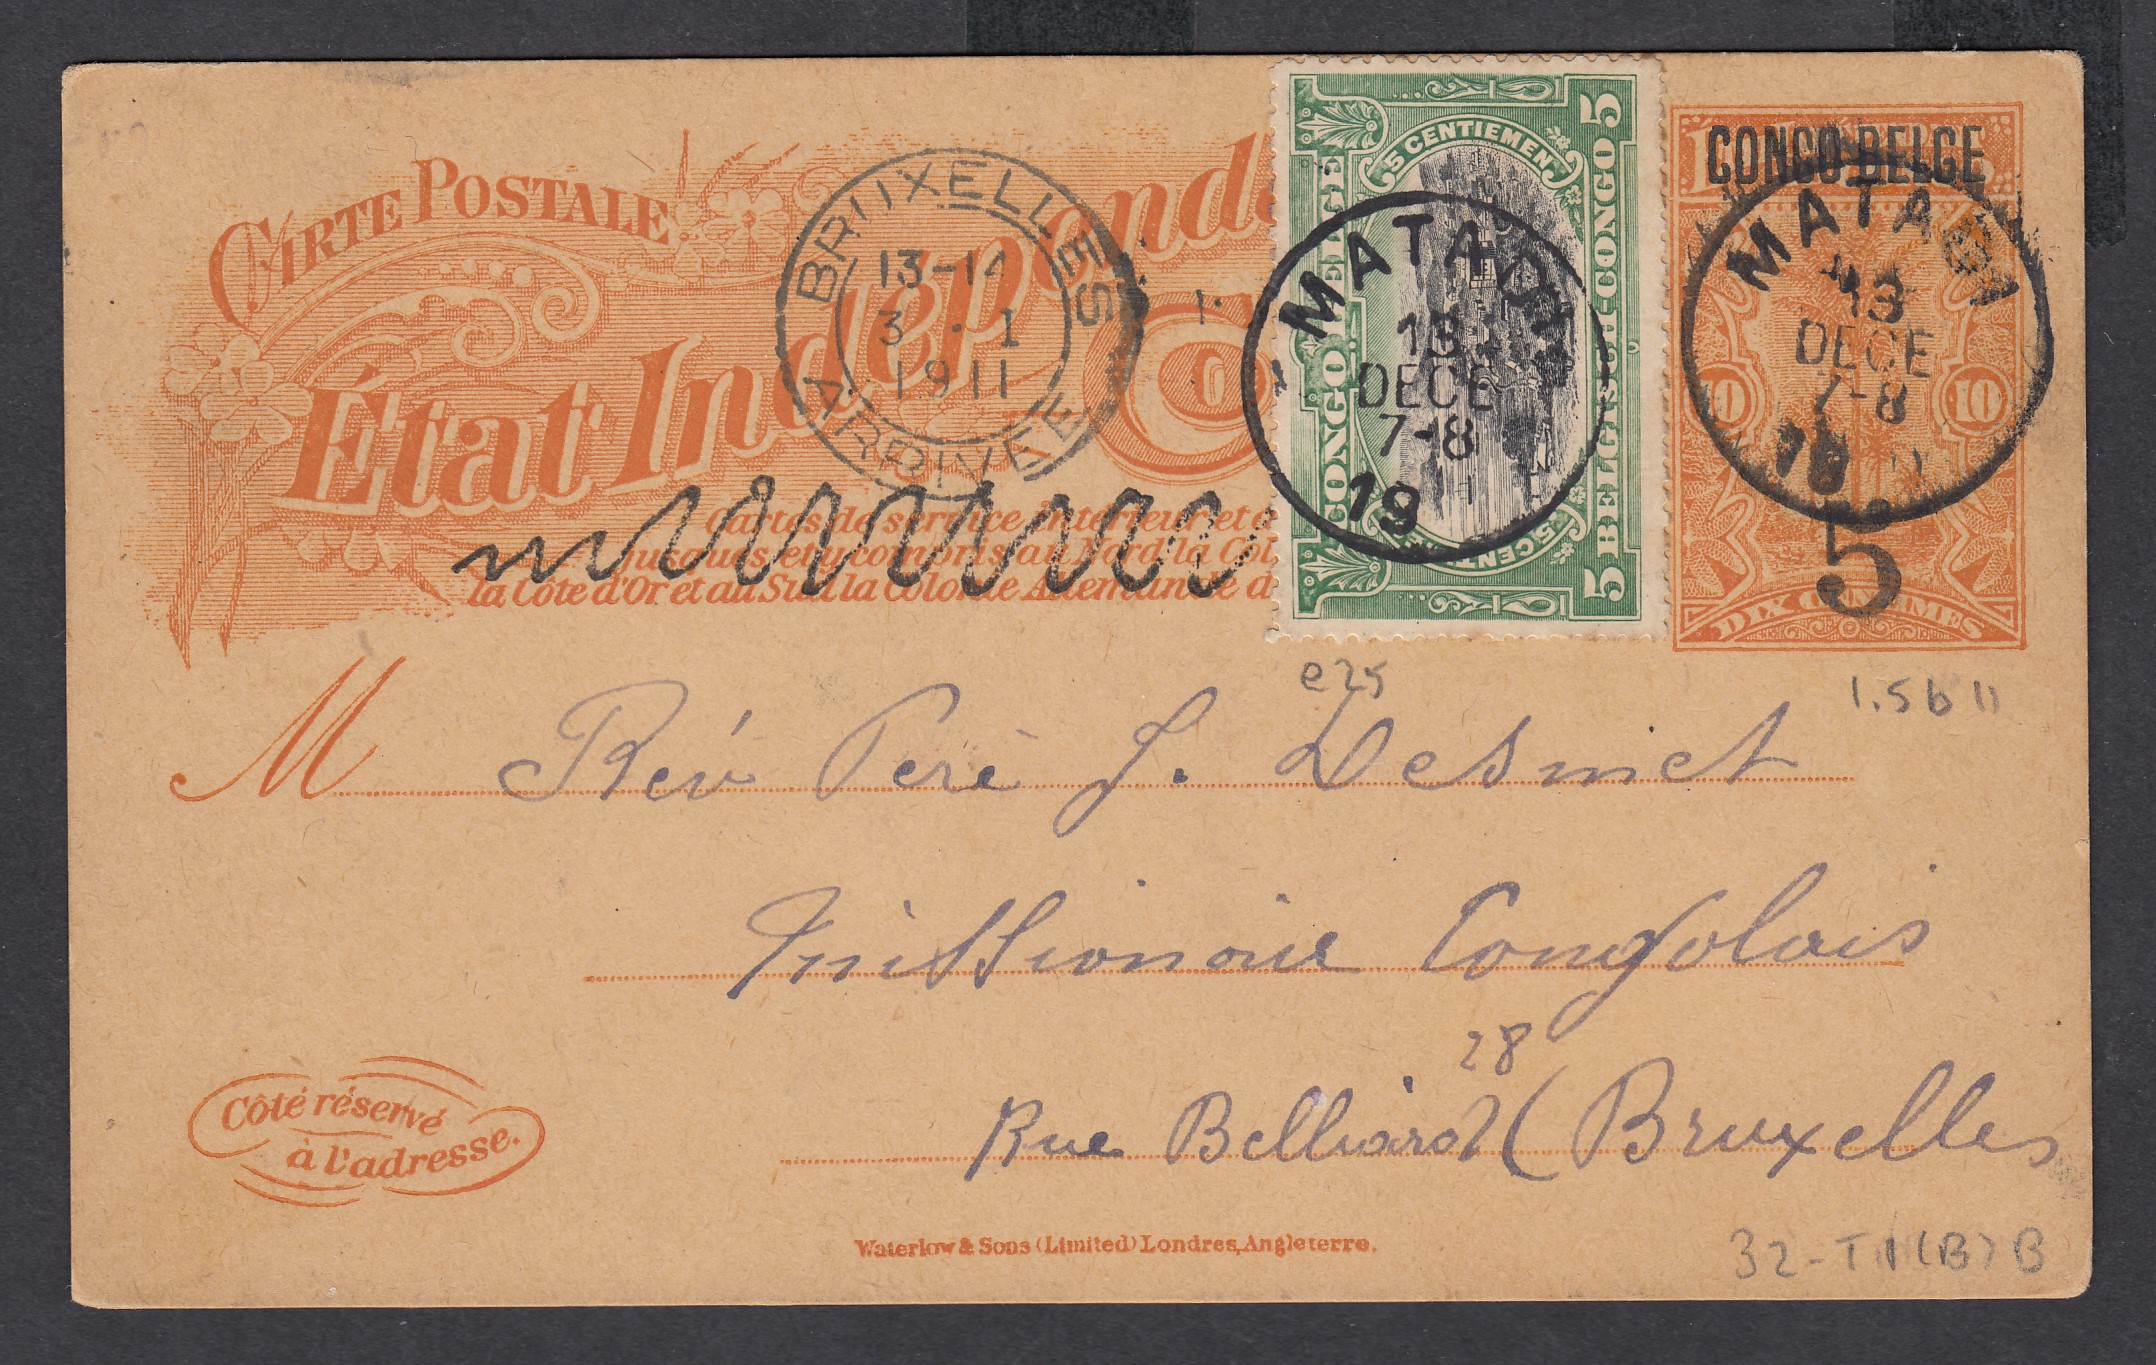 CARTE POSTALE.
État Indépend
Co
Cartes de service intérieur et d
jusques et y compris au Nord la Col
la Côte d'Or et au Sud la Colonie Allemande d
BRUXELLES
13-14
3 - I
1911
ARRIVÉE
5 CENTIEMEN
CONGO BELGE
BELGISCH-CONGO
5
5
5 CENTIMES
MATADI
13
DECE
7-8
19
CONGO BELGE
10
10
DIX CENTIMES
5
MATADI
13
DECE
7-8
e25
1.5b 11
M Rév Père J. Desmet
Missionaire Congolais
28
Rue Belliard (Bruxelles
Côté réservé
à l'adresse.
Waterlow & Sons (Limited) Londres, Angleterre.
32-T1(B)B